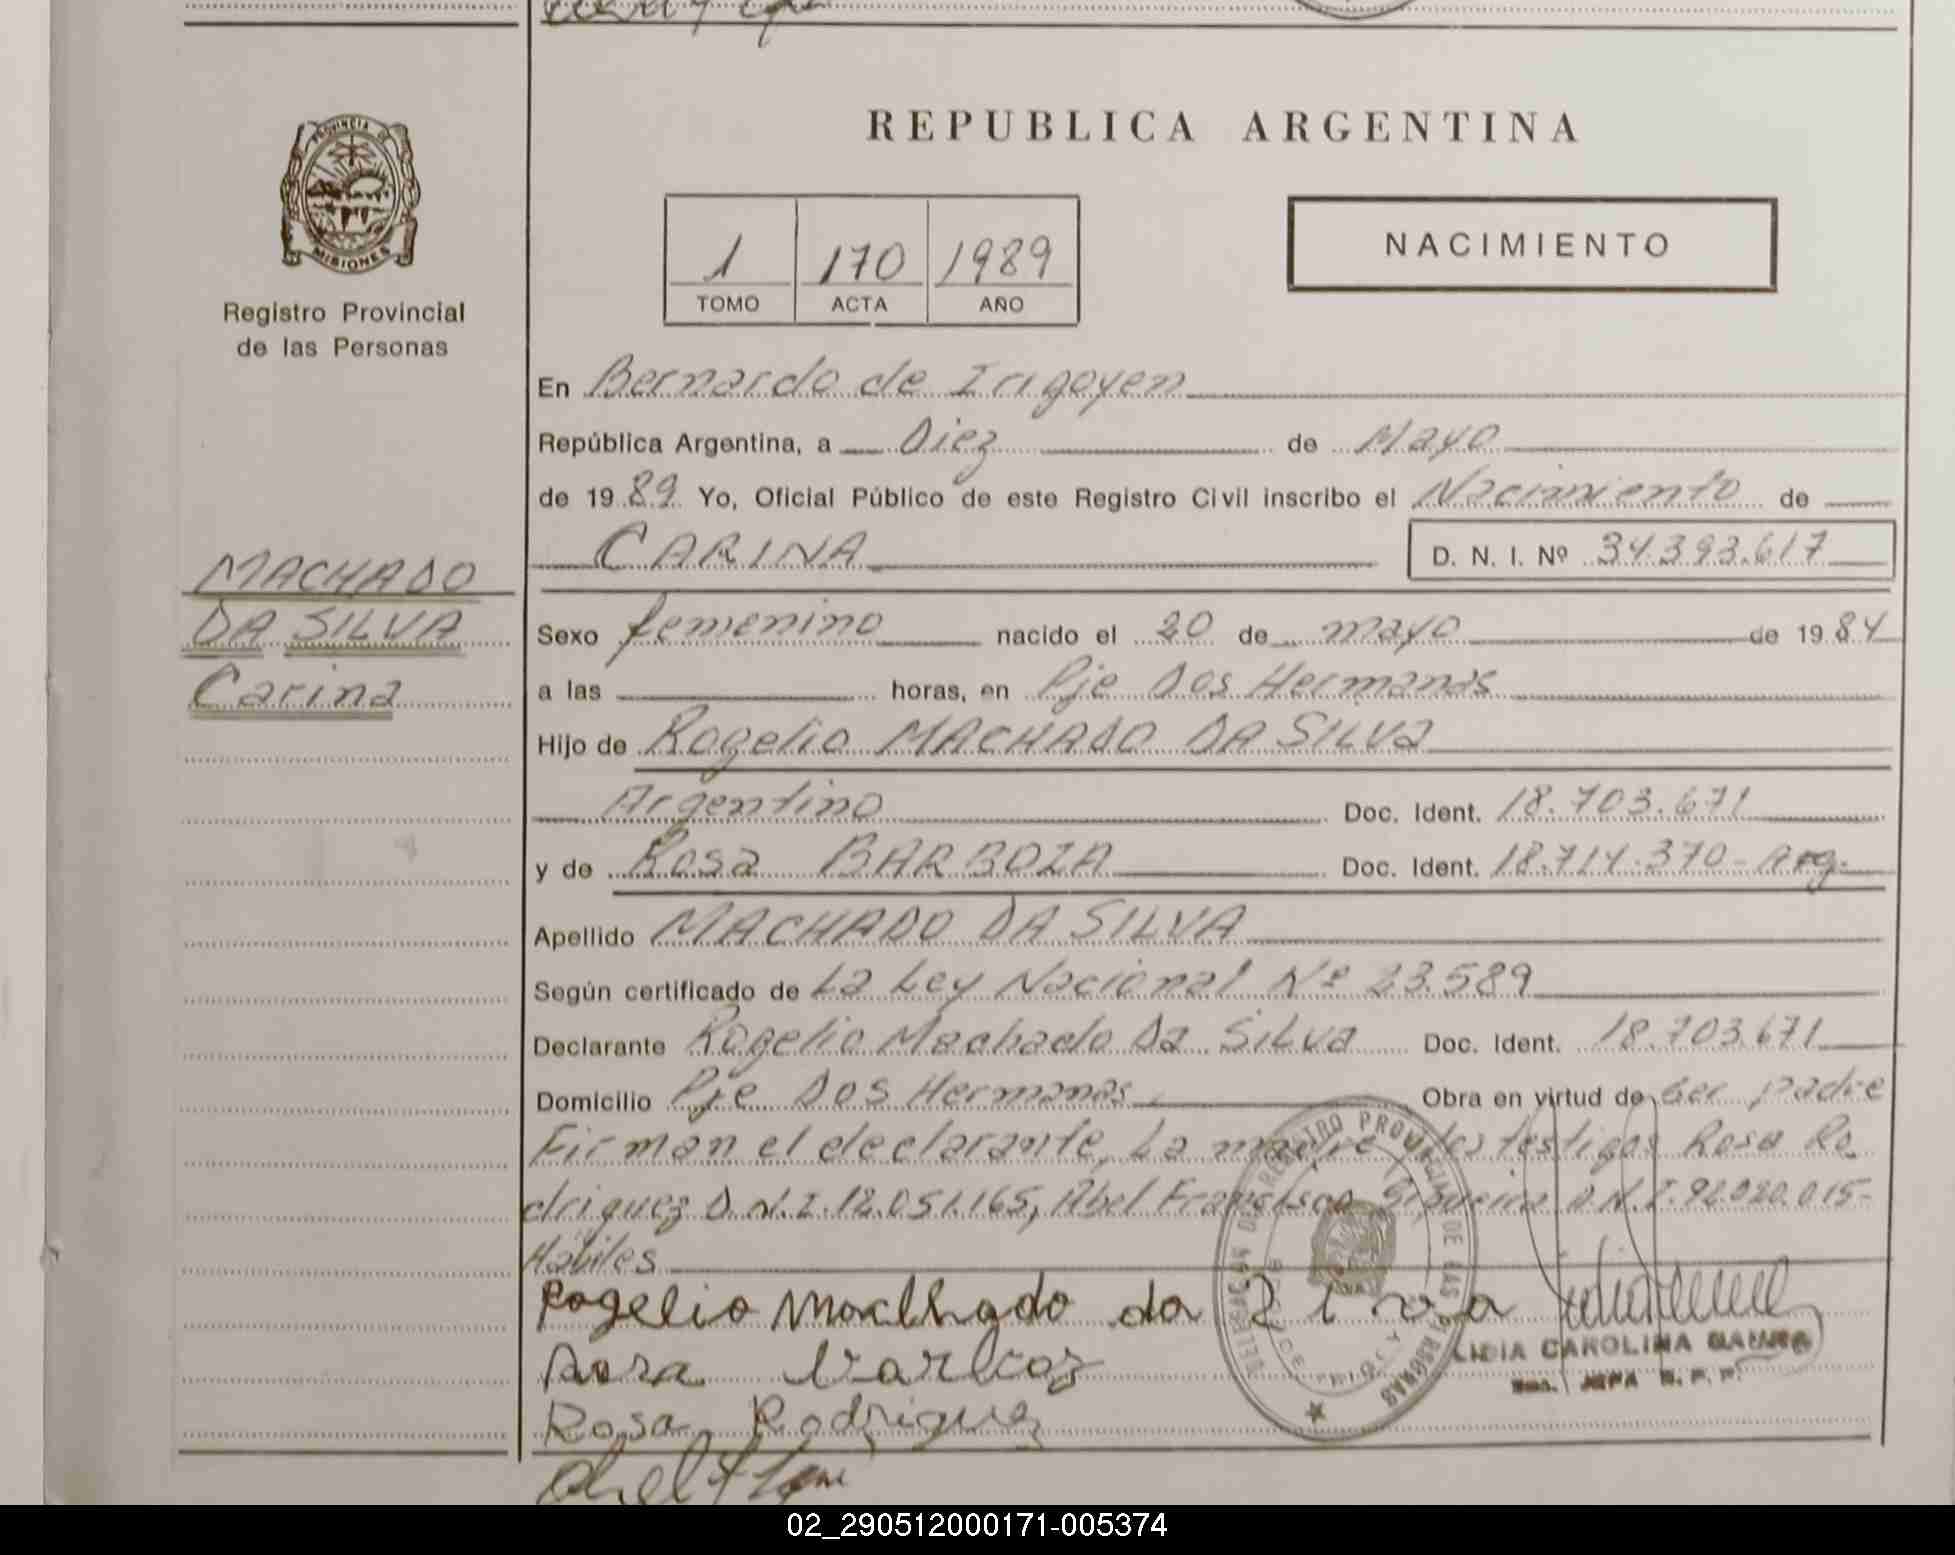 REPUBLICA ARGENTINA
PROVINCIA DE MISIONES
Registro Provincial
de las Personas
1 170 1989
TOMO ACTA AÑO
NACIMIENTO
MACHADO
DA SILVA
Carina
En Bernardo de Irigoyen
República Argentina, a Diez de Mayo
de 1989 Yo, Oficial Público de este Registro Civil inscribo el Nacimiento de
CARINA D. N. I. Nº 34.393.617
Sexo femenino nacido el 20 de mayo de 1984
a las horas, en Pje Dos Hermanas
Hijo de Rogelio MACHADO DA SILVA
Argentino Doc. Ident. 18.703.671
y de Rosa BARBOZA Doc. Ident. 18.714.370 - Arg.
Apellido MACHADO DA SILVA
Según certificado de La Ley Nacional Nº 23.589
Declarante Rogelio Machado Da Silva Doc. Ident. 18.703.671
Domicilio Pje Dos Hermanas Obra en virtud de Ser padre
Firman el declarante, La madre y los testigos Rosa Ro
driguez D.N.I. 12.051.165, Abel Francisco D.N.I. 92.020.015-
Habiles
Rogelio Machhado da
Rosa
Rosa Rodriguez
Abel
LIDIA CAROLINA
JEFA R. P. P.
DELEGACION DEL REGISTRO PROVINCIAL DE LAS PERSONAS
02_290512000171-005374